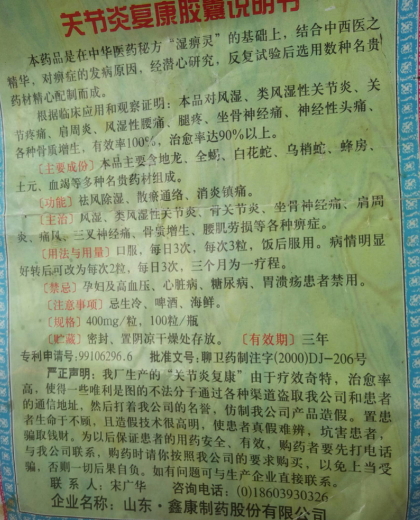 关节炎复康胶囊说明书
本药品是在中华医药秘方“湿痹灵”的基础上，结合中西医之
精华，对痹症的发病原因，经潜心研究，反复试验后选用数种名贵
药材精心配制而成。
根据临床应用和观察证明：本品对风湿、类风湿性关节炎、关
节疼痛、肩周炎、风湿性腰痛、腿疼、坐骨神经痛、神经性头痛、
各种骨质增生，有效率100%，治愈率达90%以上。
〔主要成份〕本品主要含地龙、全蝎、白花蛇、乌梢蛇、蜂房、
土元、血竭等多种名贵药材组成。
〔功能〕祛风除湿、散瘀通络、消炎镇痛。
〔主治〕风湿、类风湿性关节炎、骨关节炎、坐骨神经痛、肩周
炎、痛风、三叉神经痛、骨质增生、腰肌劳损等各种痹症。
〔用法与用量〕口服，每日3次，每次3粒，饭后服用。病情明显
好转后可改为每次2粒，每日3次，三个月为一疗程。
〔禁忌〕孕妇及高血压、心脏病、糖尿病、胃溃疡患者禁用。
〔注意事项〕忌生冷、啤酒、海鲜。
〔规格〕400mg/粒，100粒/瓶
〔贮藏〕密封、置阴凉干燥处存放。〔有效期〕三年
专利申请号:99106296.6 批准文号:聊卫药制注字(2000)DJ-206号
严正声明：我厂生产的“关节炎复康”由于疗效奇特，治愈率
高，使得一些唯利是图的不法分子通过各种渠道盗取我公司和患者
的通信地址，然后打着我公司的名誉，仿制我公司产品造假。置患
者生命于不顾，且造假技术很高明，使患者真假难辨，坑害患者，
骗取钱财。为以后保证患者的用药安全、有效。购药者要先打电话
与我公司联系，购药时请你按照我公司的要求购买，以免上当受
骗，否则一切后果自负。如有问题可与生产企业直接联系。
联 系 人：宋广华 咨询电话:(0)18603930326
企业名称：山东·鑫康制药股份有限公司